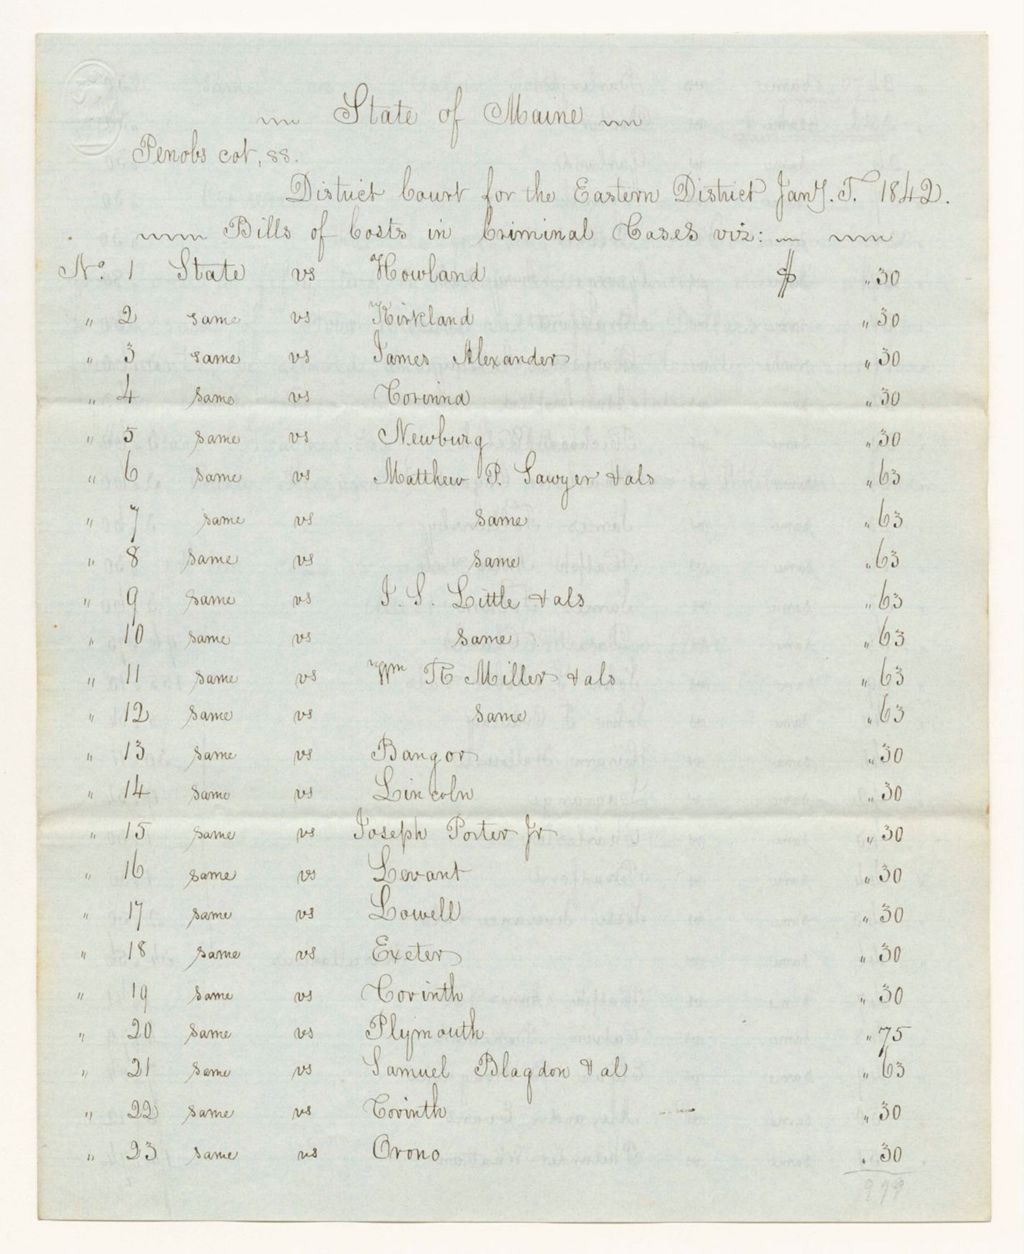 State of Maine
Penobscot, ss.
District Court for the Eastern District Jany. T. 1842.
Bills of Costs in Criminal Cases viz:
No 1 State vs Howland $ „30
„ 2 same vs Kirkland „30
„ 3 same vs James Alexander „30
„ 4 same vs Corinna „30
„ 5 same vs Newburg „30
„ 6 same vs Matthew P. Sawyer & als „63
„ 7 same vs same „63
„ 8 same vs same „63
„ 9 same vs I. S. Little & als „63
„ 10 same vs same „63
„ 11 same vs Wm H Miller & als „63
„ 12 same vs same „63
„ 13 same vs Bangor „30
„ 14 same vs Lincoln „30
„ 15 same vs Joseph Porter Jr „30
„ 16 same vs Levant „30
„ 17 same vs Lowell „30
„ 18 same vs Exeter „30
„ 19 same vs Corinth „30
„ 20 same vs Plymouth „75
„ 21 same vs Samuel Blagdon & al „63
„ 22 same vs Corinth „30
„ 23 same vs Orono .30
999